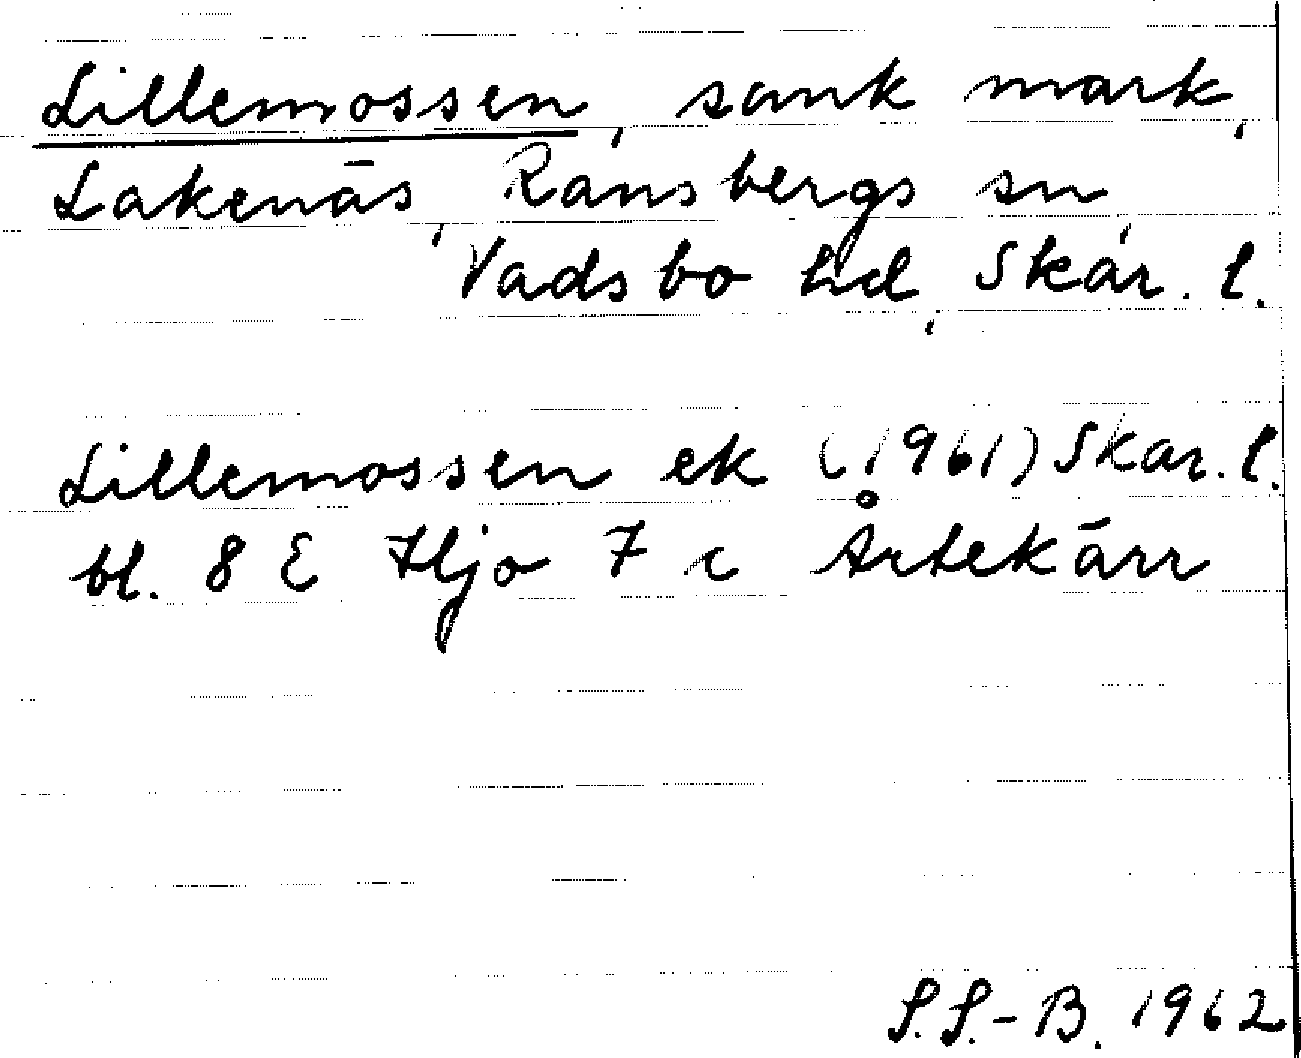 Lillemossen, sank mark,
Lakenäs, Ransbergs sn,
Vadsbo hd, Skar. l.
Lillemossen ek (1961) Skar. l.
bl. 8 E Hjo 7 c Årtekärr
S.S.-B. 1962